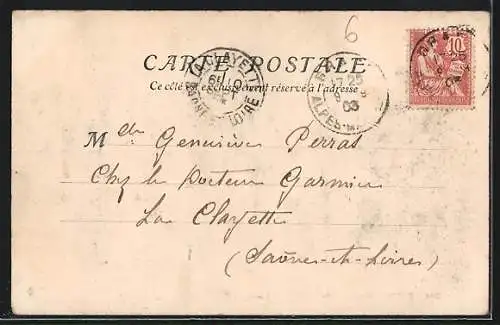 6
CARTE POSTALE
Ce côté est exclusivement réservé à l'adresse
LA CLAYETTE
LOIRE
ALPES-M
03
10
Mlle Geneviève Perras
Chez le Docteur Garnier
La Clayette
(Saône-et-Loire)